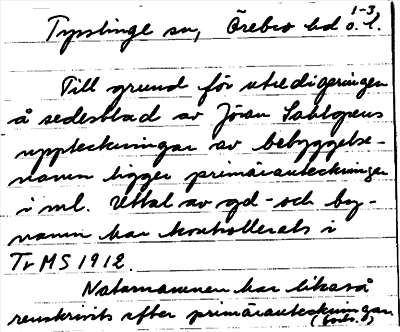 1-3
Tysslinge sn, Örebro hd ö. l.
Till grund för utredigeringen
å sedesblad av Jöran Sahlgrens
uppteckningar av bebyggelse-
namn ligger primäranteckningar
i ml. Uttal av gd- och by-
namn har kontrollerats i
Tr MS 1912.
Naturnamnen har likaså
renskrivits efter primäranteckningar
(forts.)